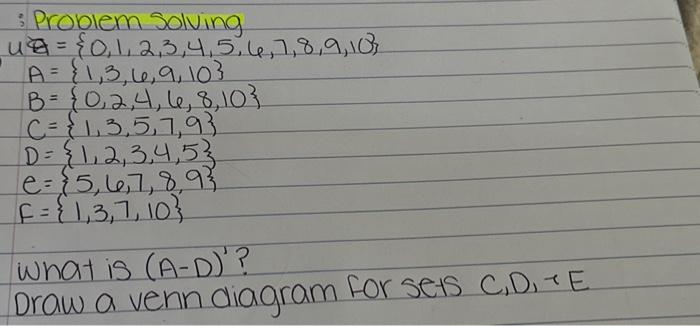 : Problem Solving
U = {0,1,2,3,4,5,6,7,8,9,10}
A = {1,3,6,9,10}
B = {0,2,4,6,8,10}
C = {1,3,5,7,9}
D = {1,2,3,4,5}
e = {5,6,7,8,9}
F = {1,3,7,10}
What is (A-D)'?
Draw a venn diagram for sets C,D, + E